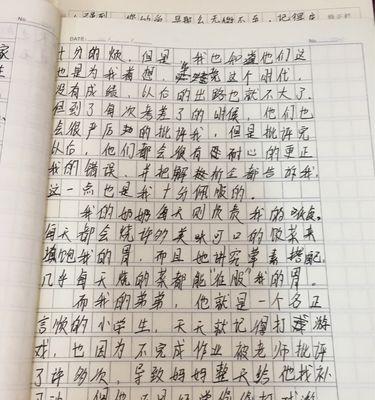 你的
No
DATE
家
十分的烦,但是,我也知道他们这
也是为我着想,毕竟这个时代,
没有成绩,以后的出路也就不大了.
但到了每次考差了的时候,他们也
会很严厉的批评我,但是批评完
以后,他们都会很有耐心的更正
我的错误,并把解题析全部告诉我.
这一点也是我十分佩服的.
我的奶奶每天则负责我的
每天都会烧许多美味可口的饭菜来
填饱我的胃,而且她讲究荤素搭配.
几乎每天烧的菜都能"征服"我的胃.
而我的弟弟,他就是一个名正
言顺的小学生,天天就记得打游
戏,也因为不完成作业被老师批评
了许多次,导致妈妈整天给他找补